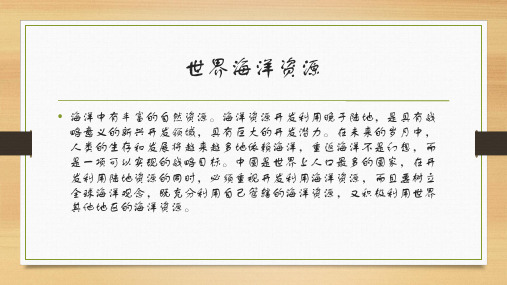 世界海洋资源
• 海洋中有丰富的自然资源。海洋资源开发利用晚于陆地，是具有战
略意义的新兴开发领域，具有巨大的开发潜力。在未来的岁月中，
人类的生存和发展将越来越多地依赖海洋，重返海洋不是幻想，而
是一项可以实现的战略目标。中国是世界上人口最多的国家，在开
发利用陆地资源的同时，必须重视开发利用海洋资源，而且要树立
全球海洋观念，既充分利用自己管辖的海洋资源，又积极利用世界
其他地区的海洋资源。